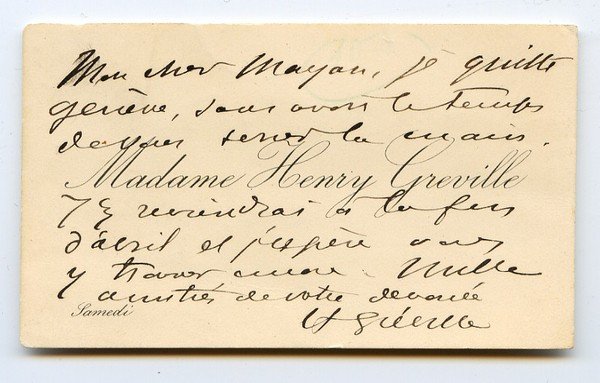 Mon cher Mayan, je quitte
Genève, sans avoir le temps
de vous serrer la main.
Madame Henry Greville
J'y reviendrai à la fin
d'avril et j'espère vous
y trouver encore. Mille
amitiés de votre dévouée
Samedi
H Gréville